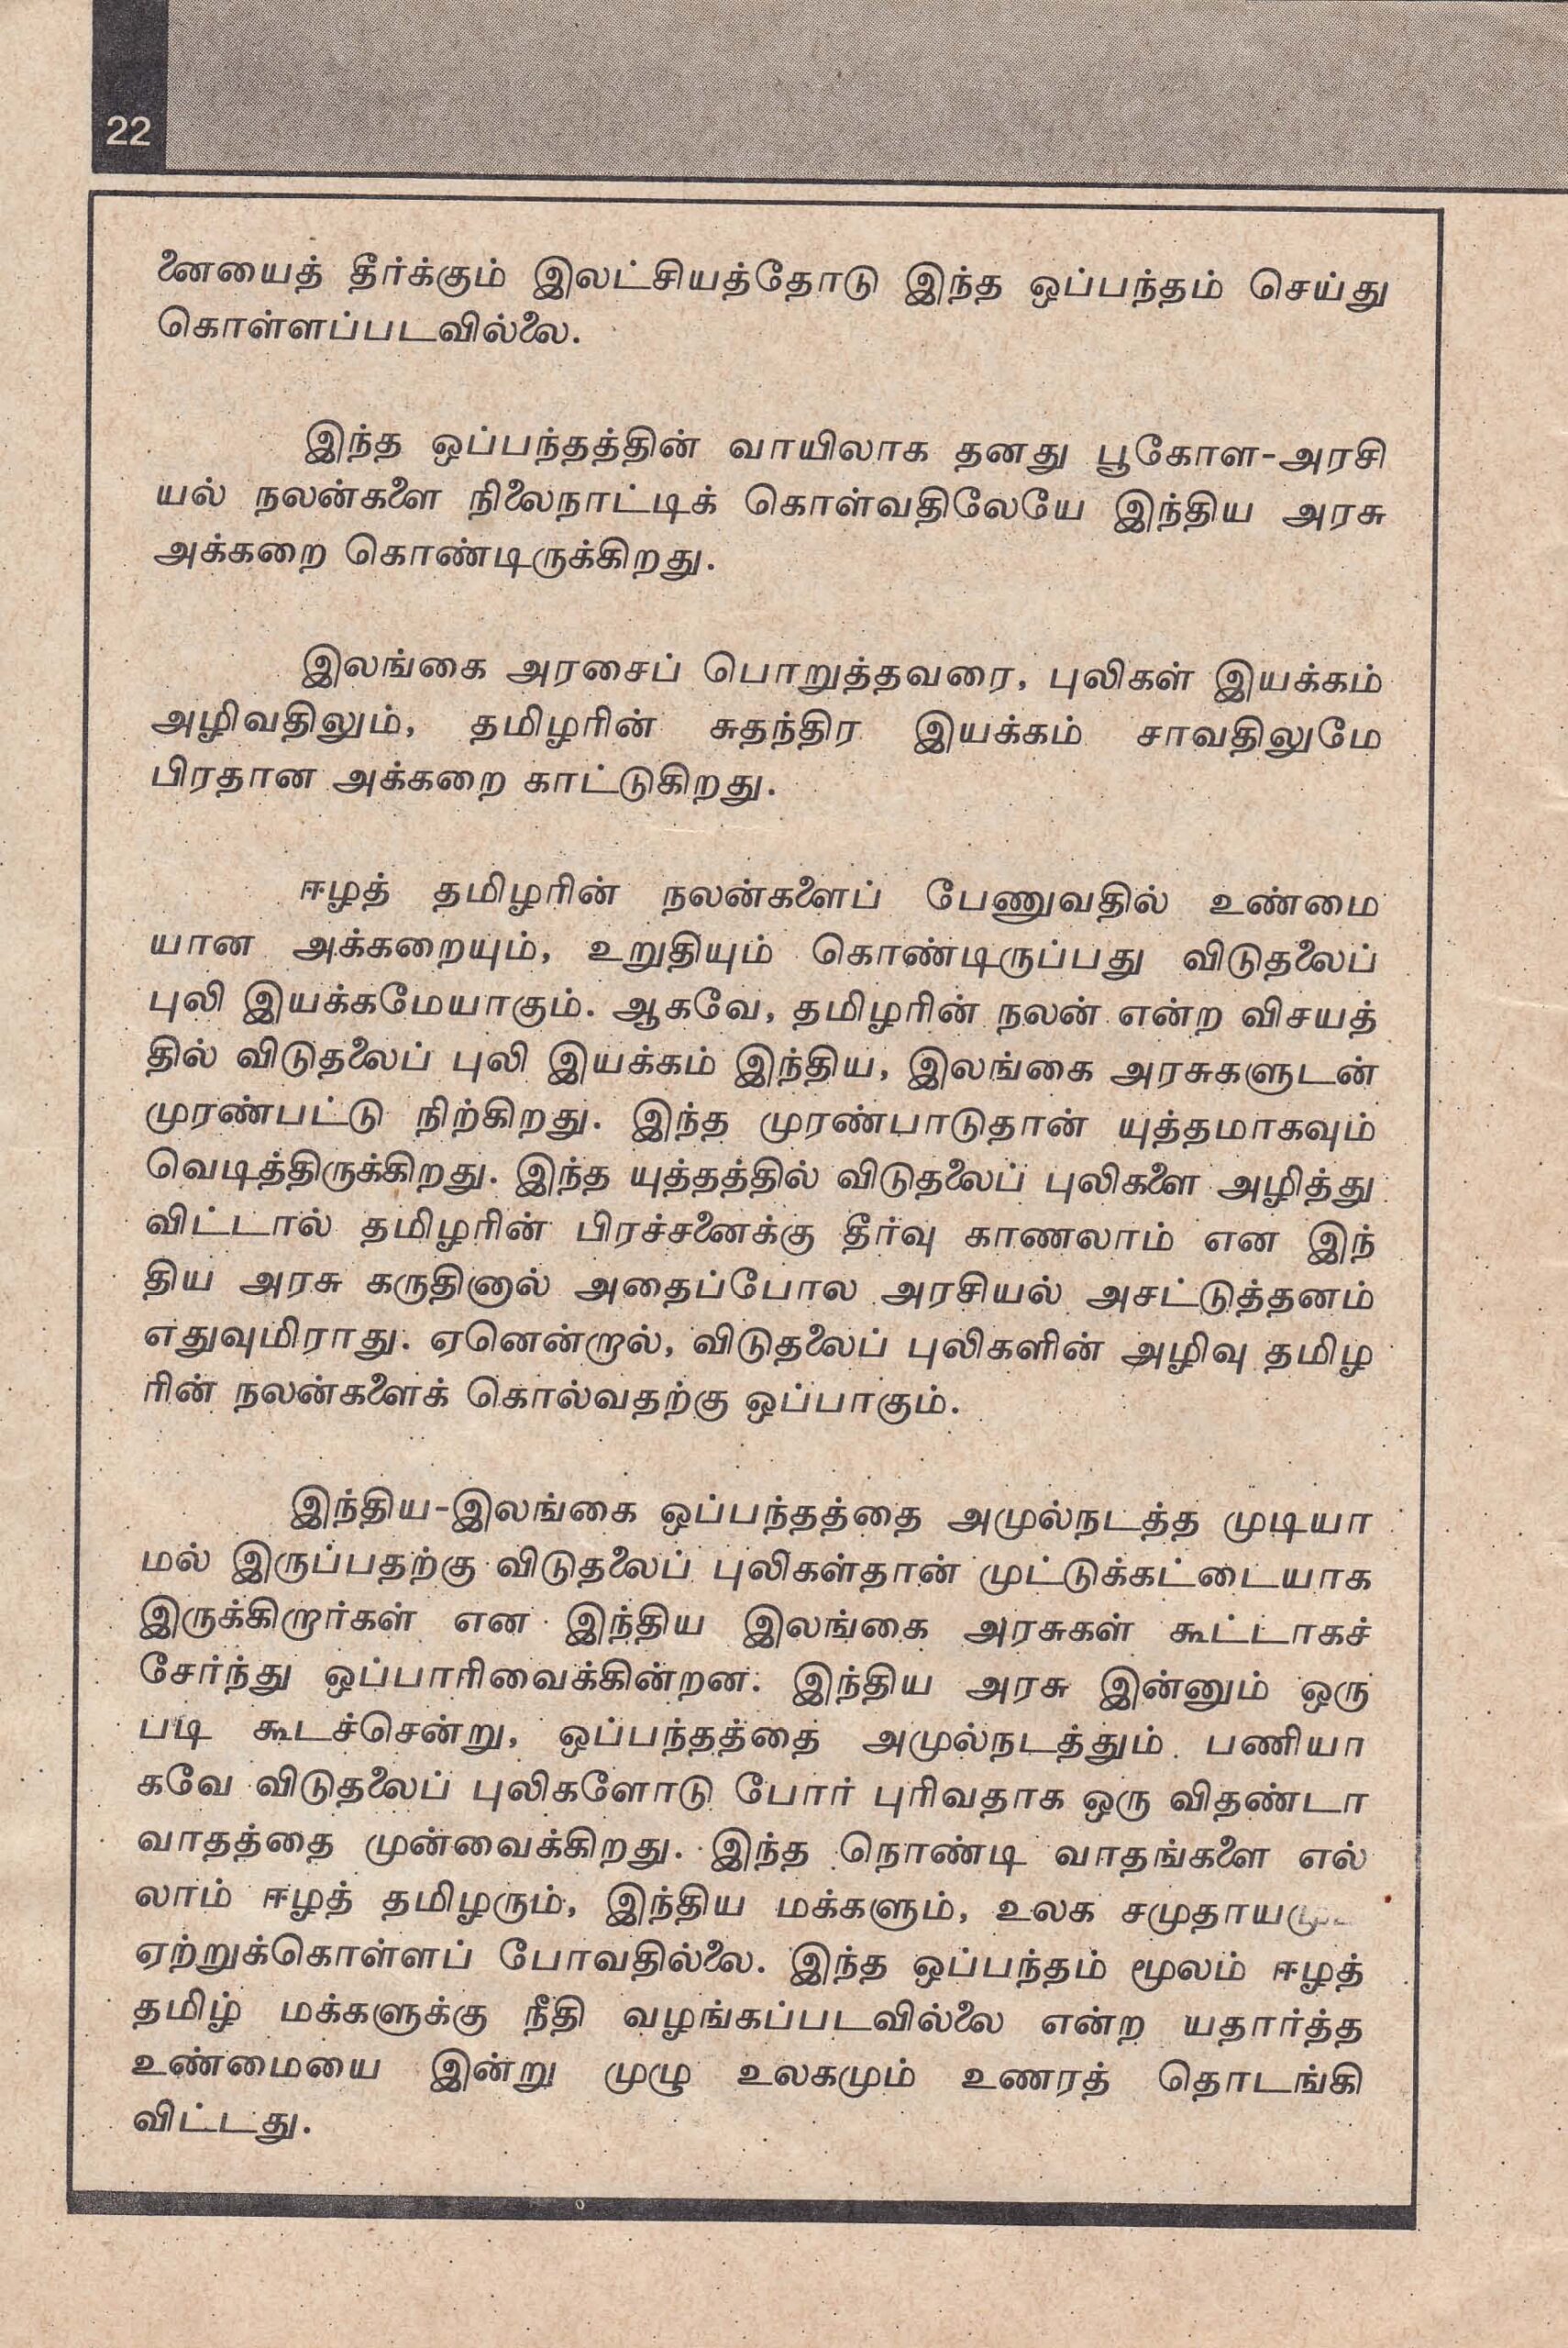 22
னையைத் தீர்க்கும் இலட்சியத்தோடு இந்த ஒப்பந்தம் செய்து
கொள்ளப்படவில்லை.
இந்த ஒப்பந்தத்தின் வாயிலாக தனது பூகோள-அரசி
யல் நலன்களை நிலைநாட்டிக் கொள்வதிலேயே இந்திய அரசு
அக்கறை கொண்டிருக்கிறது.
இலங்கை அரசைப் பொறுத்தவரை, புலிகள் இயக்கம்
அழிவதிலும், தமிழரின் சுதந்திர இயக்கம் சாவதிலுமே
பிரதான அக்கறை காட்டுகிறது.
ஈழத் தமிழரின் நலன்களைப் பேணுவதில் உண்மை
யான அக்கறையும், உறுதியும் கொண்டிருப்பது விடுதலைப்
புலி இயக்கமேயாகும். ஆகவே, தமிழரின் நலன் என்ற விசயத்
தில் விடுதலைப் புலி இயக்கம் இந்திய, இலங்கை அரசுகளுடன்
முரண்பட்டு நிற்கிறது. இந்த முரண்பாடுதான் யுத்தமாகவும்
வெடித்திருக்கிறது. இந்த யுத்தத்தில் விடுதலைப் புலிகளை அழித்து
விட்டால் தமிழரின் பிரச்சனைக்கு தீர்வு காணலாம் என இந்
திய அரசு கருதினால் அதைப்போல அரசியல் அசட்டுத்தனம்
எதுவுமிராது. ஏனென்றால், விடுதலைப் புலிகளின் அழிவு தமிழ
ரின் நலன்களைக் கொல்வதற்கு ஒப்பாகும்.
இந்திய-இலங்கை ஒப்பந்தத்தை அமுல்நடத்த முடியா
மல் இருப்பதற்கு விடுதலைப் புலிகள்தான் முட்டுக்கட்டையாக
இருக்கிறார்கள் என இந்திய இலங்கை அரசுகள் கூட்டாகச்
சேர்ந்து ஒப்பாரிவைக்கின்றன. இந்திய அரசு இன்னும் ஒரு
படி கூடச்சென்று, ஒப்பந்தத்தை அமுல்நடத்தும் பணியா
கவே விடுதலைப் புலிகளோடு போர் புரிவதாக ஒரு விதண்டா
வாதத்தை முன்வைக்கிறது. இந்த நொண்டி வாதங்களை எல்
லாம் ஈழத் தமிழரும், இந்திய மக்களும், உலக
ஏற்றுக்கொள்ளப் போவதில்லை. இந்த ஒப்பந்தம் மூலம் ஈழத்
தமிழ் மக்களுக்கு நீதி வழங்கப்படவில்லை என்ற யதார்த்த
உண்மையை இன்று முழு உலகமும் உணரத் தொடங்கி
விட்டது.